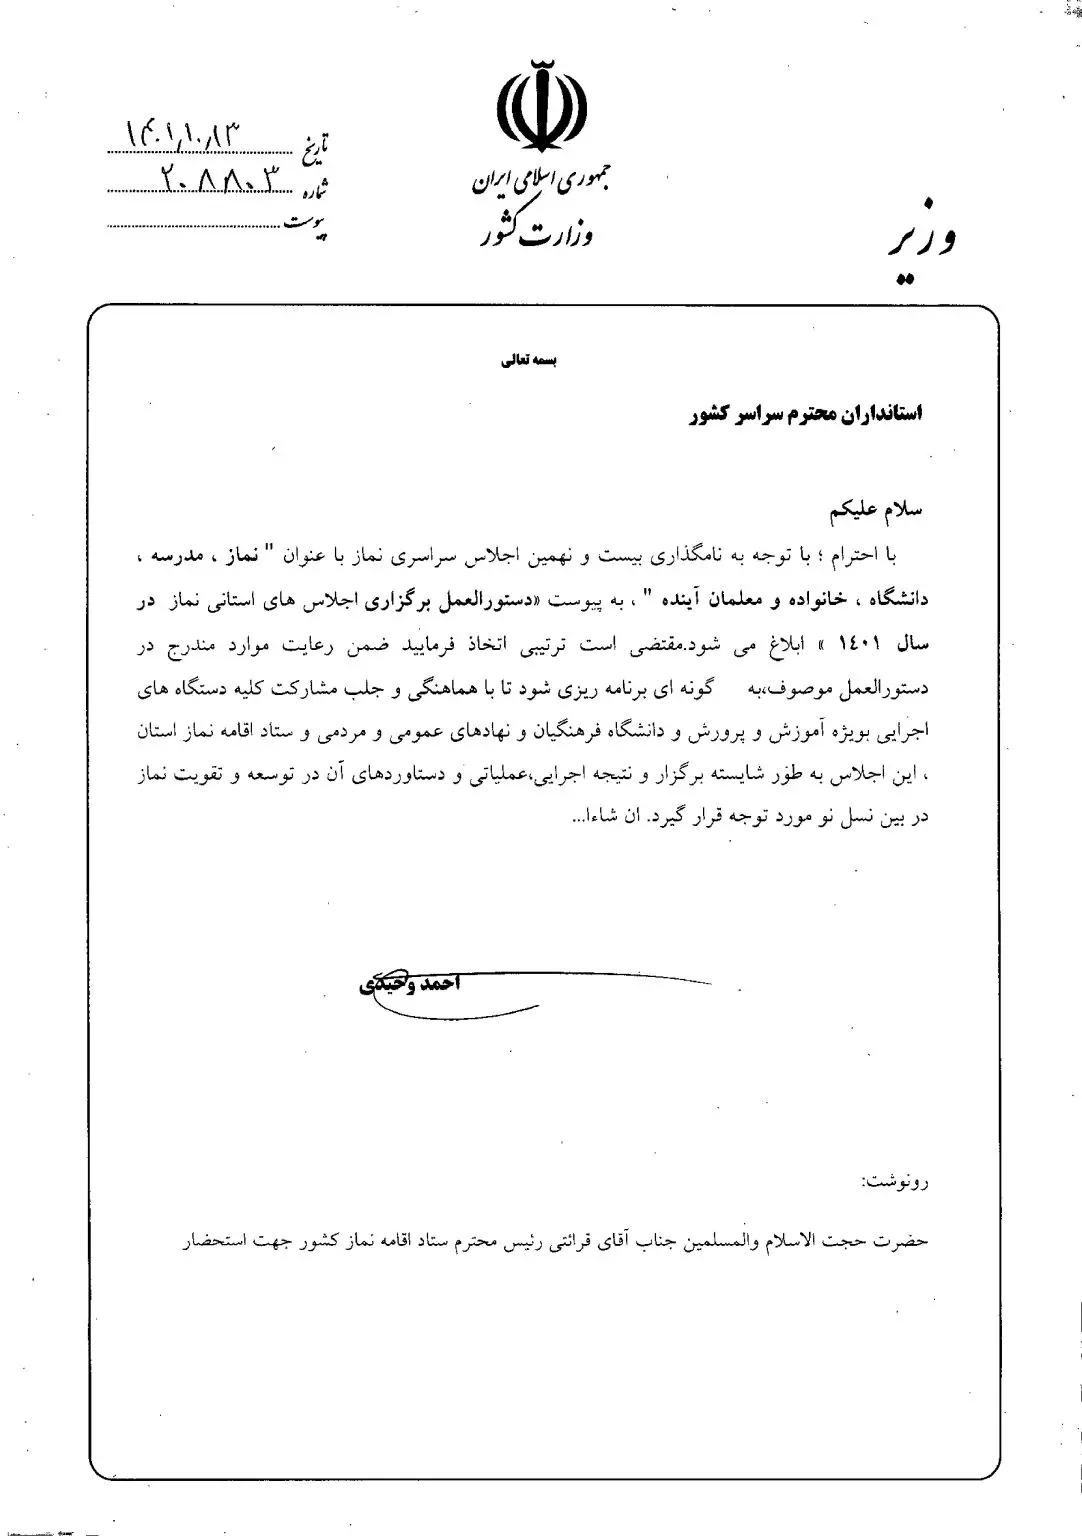 جمهوری اسلامی ایران
وزارت کشور
وزیر
تاریخ ۱۴۰۱/۱۰/۱۳
شماره ۲۰۸۸۰۳
پیوست
بسمه تعالی
استانداران محترم سراسر کشور
سلام علیکم
با احترام ؛ با توجه به نامگذاری بیست و نهمین اجلاس سراسری نماز با عنوان " نماز ، مدرسه ،
دانشگاه ، خانواده و معلمان آینده " ، به پیوست «دستورالعمل برگزاری اجلاس های استانی نماز در
سال ۱٤۰۱ » ابلاغ می شود.مقتضی است ترتیبی اتخاذ فرمایید ضمن رعایت موارد مندرج در
دستورالعمل موصوف،به گونه ای برنامه ریزی شود تا با هماهنگی و جلب مشارکت کلیه دستگاه های
اجرایی بویژه آموزش و پرورش و دانشگاه فرهنگیان و نهادهای عمومی و مردمی و ستاد اقامه نماز استان
، این اجلاس به طور شایسته برگزار و نتیجه اجرایی،عملیاتی و دستاوردهای آن در توسعه و تقویت نماز
در بین نسل نو مورد توجه قرار گیرد. ان شاءا...
احمد وحیدی
رونوشت:
حضرت حجت الاسلام والمسلمین جناب آقای قرائتی رئیس محترم ستاد اقامه نماز کشور جهت استحضار